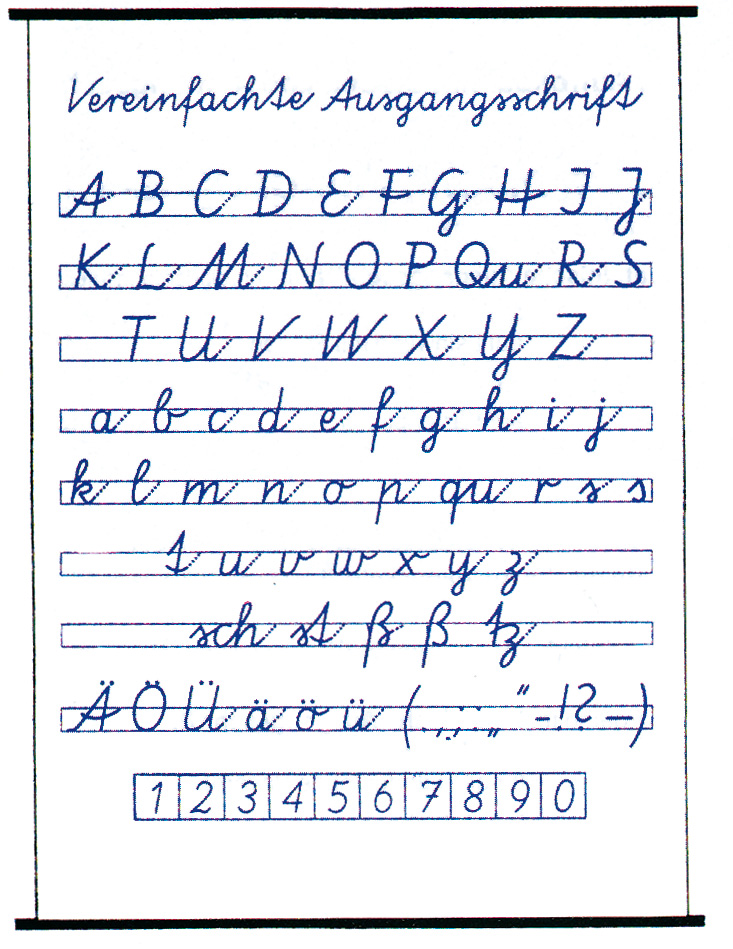 Vereinfachte Ausgangsschrift
A B C D E F G H I J
K L M N O P Qu R S
T U V W X Y Z
a b c d e f g h i j
k l m n o p qu r s s
t u v w x y z
sch st ß ß tz
Ä Ö Ü ä ö ü ( . , ; : „ “ - ! ? – )
1 2 3 4 5 6 7 8 9 0